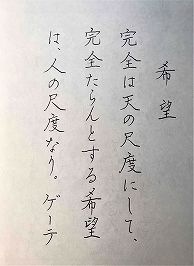 希望
完全は天の尺度にして、
完全たらんとする希望
は、人の尺度なり。ゲーテ